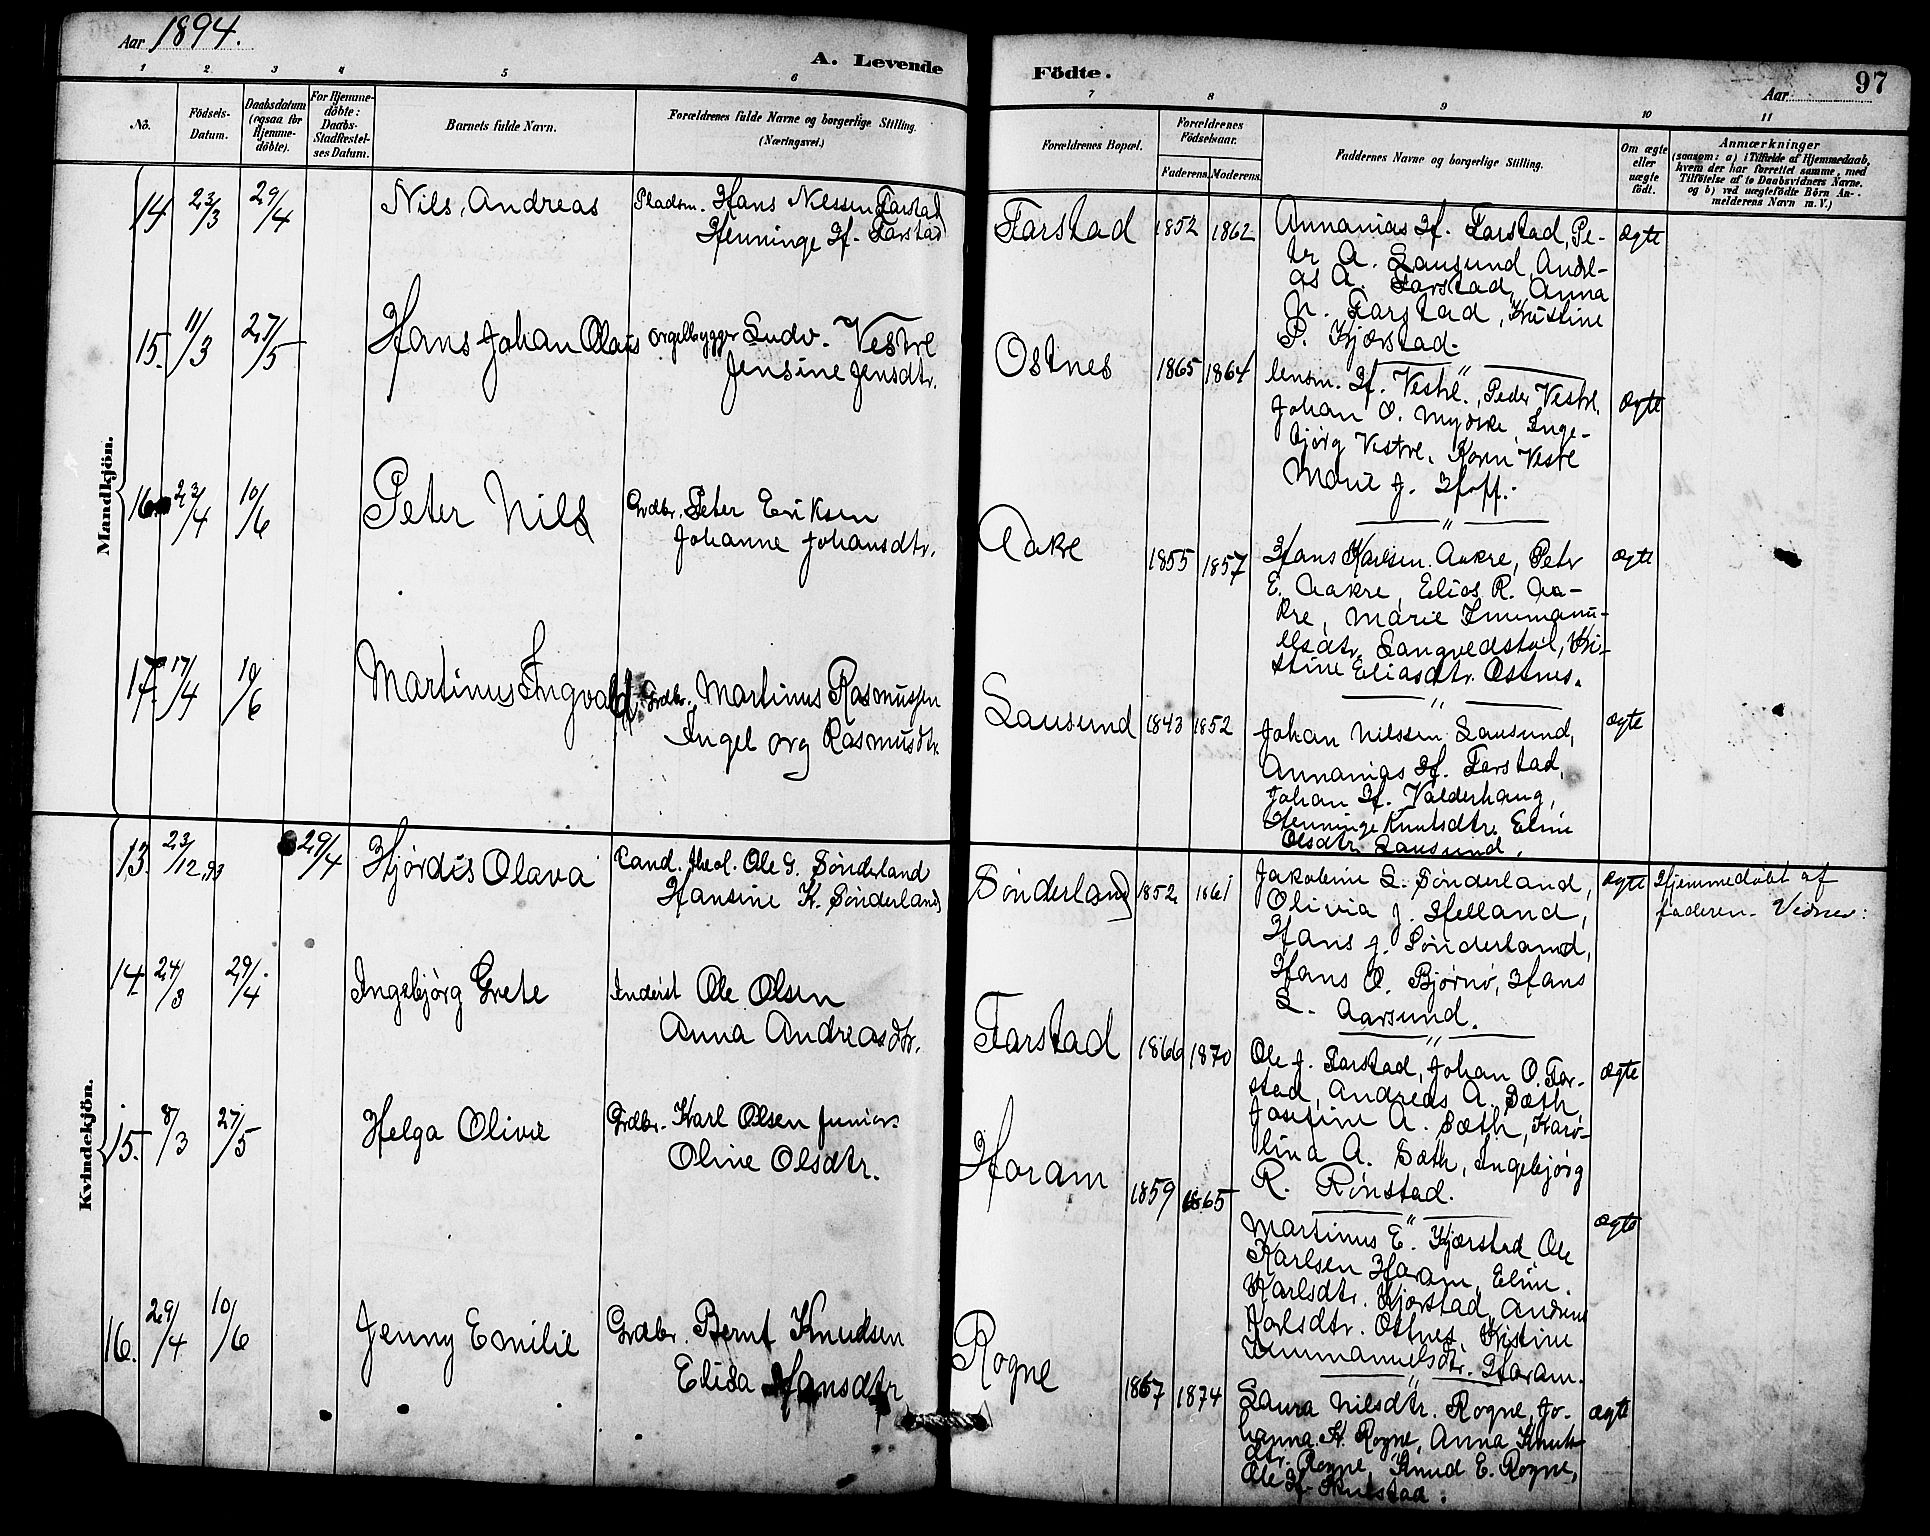 Aar 1894.
A. Levende Födte.
97
Aar
1 2 3 4 5 6 7 8 9 10 11
No.
Födsels-Datum.
Daabsdatum (ogsaa for Hjemme-döbte).
For Hjemme-döbte: Daabs-Stadfæstel-ses Datum.
Barnets fulde Navn.
Forældrenes fulde Navne og borgerlige Stilling. (Næringsvei.)
Forældrenes Bopæl.
Forældrenes Födselsaar.
Faderens. Moderens.
Faddernes Navne og borgerlige Stilling.
Om ægte eller uægte födt.
Anmærkninger
(saasom: a) i Tilfælde af Hjemmedaab, hvem der har forrettet samme, med Tilföielse af to Daabsvidners Navne. og b) ved uægtefödte Börn Anmelderens Navn m. V.)
Mandkjön.
14 23/3 29/4 Nils Andreas
Pladsm. Hans Nilssen Farstad
Henninge H. Farstad
Farstad 1852 1862
Annanias H. Farstad, Pe-
ter A. Lausund, Andre-
as A. Farstad, Anna
N. Farstad, Kristine
P. Kjærstad.
ægte
15. 11/3 27/5 Hans Johan Olais
orgelbygger Ludv. Vestre
Jensine Jensdtr.
Ostnes 1865 1864
lensm. H. Vestre, Peder Vestre,
Johan O. Myrske, Inge-
bjørg Vestre, Karen Vestre
Marie J. Hoff.
ægte
16. 23/4 10/6 Peter Nils
Grdbr. Peter Eriksen
Johanne Johansdtr.
Aakre 1855 1857
Hans Karlsen Aakre, Peter
E. Aakre, Elias R. Aa-
kre, Marie Immanu-
elsdtr. Langvedstøl, Kri-
stine Eliasdtr. Ostnes.
ægte
17. 17/4 10/6 Martinus Ingvald
Grdbr. Martinus Rasmussen
Ingeborg Rasmusdtr.
Lausund 1843 1852
Johan Nilssen Lausund,
Annanias H. Farstad,
Johan H. Valderhaug,
Henninge Knutsdtr., Eline
Olsdtr. Lausund.
ægte
Kvindekjön.
13. 23/12.93 29/4 Hjørdis Olava
Cand. theol. Ole G. Sønderland
Hansine K. Sønderland
Sønderland 1852 1861
Jakobine L. Sønderland,
Olivia J. Helland,
Hans J. Sønderland,
Hans O. Bjørnø, Hans
L. Aarsund.
ægte
Hjemmedøbt af
faderen. Vidner:
14. 24/3 29/4 Ingebjørg Grete
Inderst Ole Olsen
Anna Andreasdtr.
Farstad 1866 1870
Ole J. Farstad, Johan O. Far-
stad, Andreas A. Sæth,
Josefine A. Sæth, Karo-
lina A. Sæth, Ingebjørg
R. Rønstad.
ægte
15. 8/3 27/5 Helga Olivie
Grdbr. Karl Olsen junior
Oline Olsdtr.
Haram 1859 1865
Martinus E. Kjærstad, Ole
Karlsen Haram, Eline
Karlsdtr. Kjærstad, Andrine
Karlsdtr. Ostnes, Kristine
Immanuelsdtr. Haram.
ægte
16. 29/4 10/6 Jenny Emilie
Grdbr. Bernt Knudsen
Elisa Hansdtr
Rogne 1867 1874
Laura Nilsdtr. Rogne, Jo-
hanna K. Rogne, Anna Knuts-
dtr. Rogne, Knud E. Rogne,
Ole H.
ægte